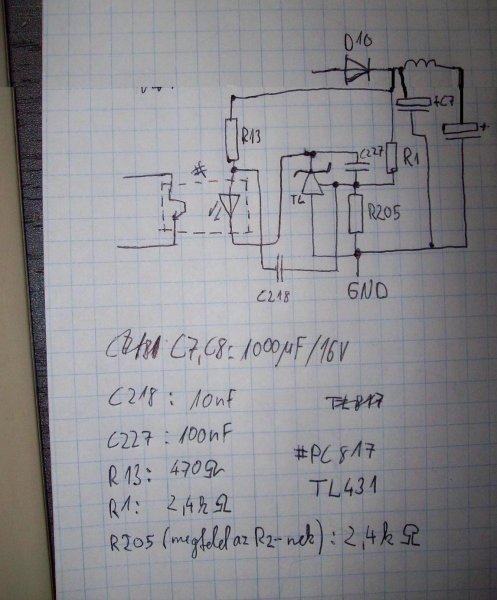 D10
+C7
+
R13
C227
R1
#
TL
R205
C218
GND
C7, C8: 1000µF/16V
C218: 10nF
TL817
C227: 100nF
#PC817
R13: 470Ω
TL431
R1: 2,4kΩ
R205 (megfelel az R2-nek): 2,4kΩ